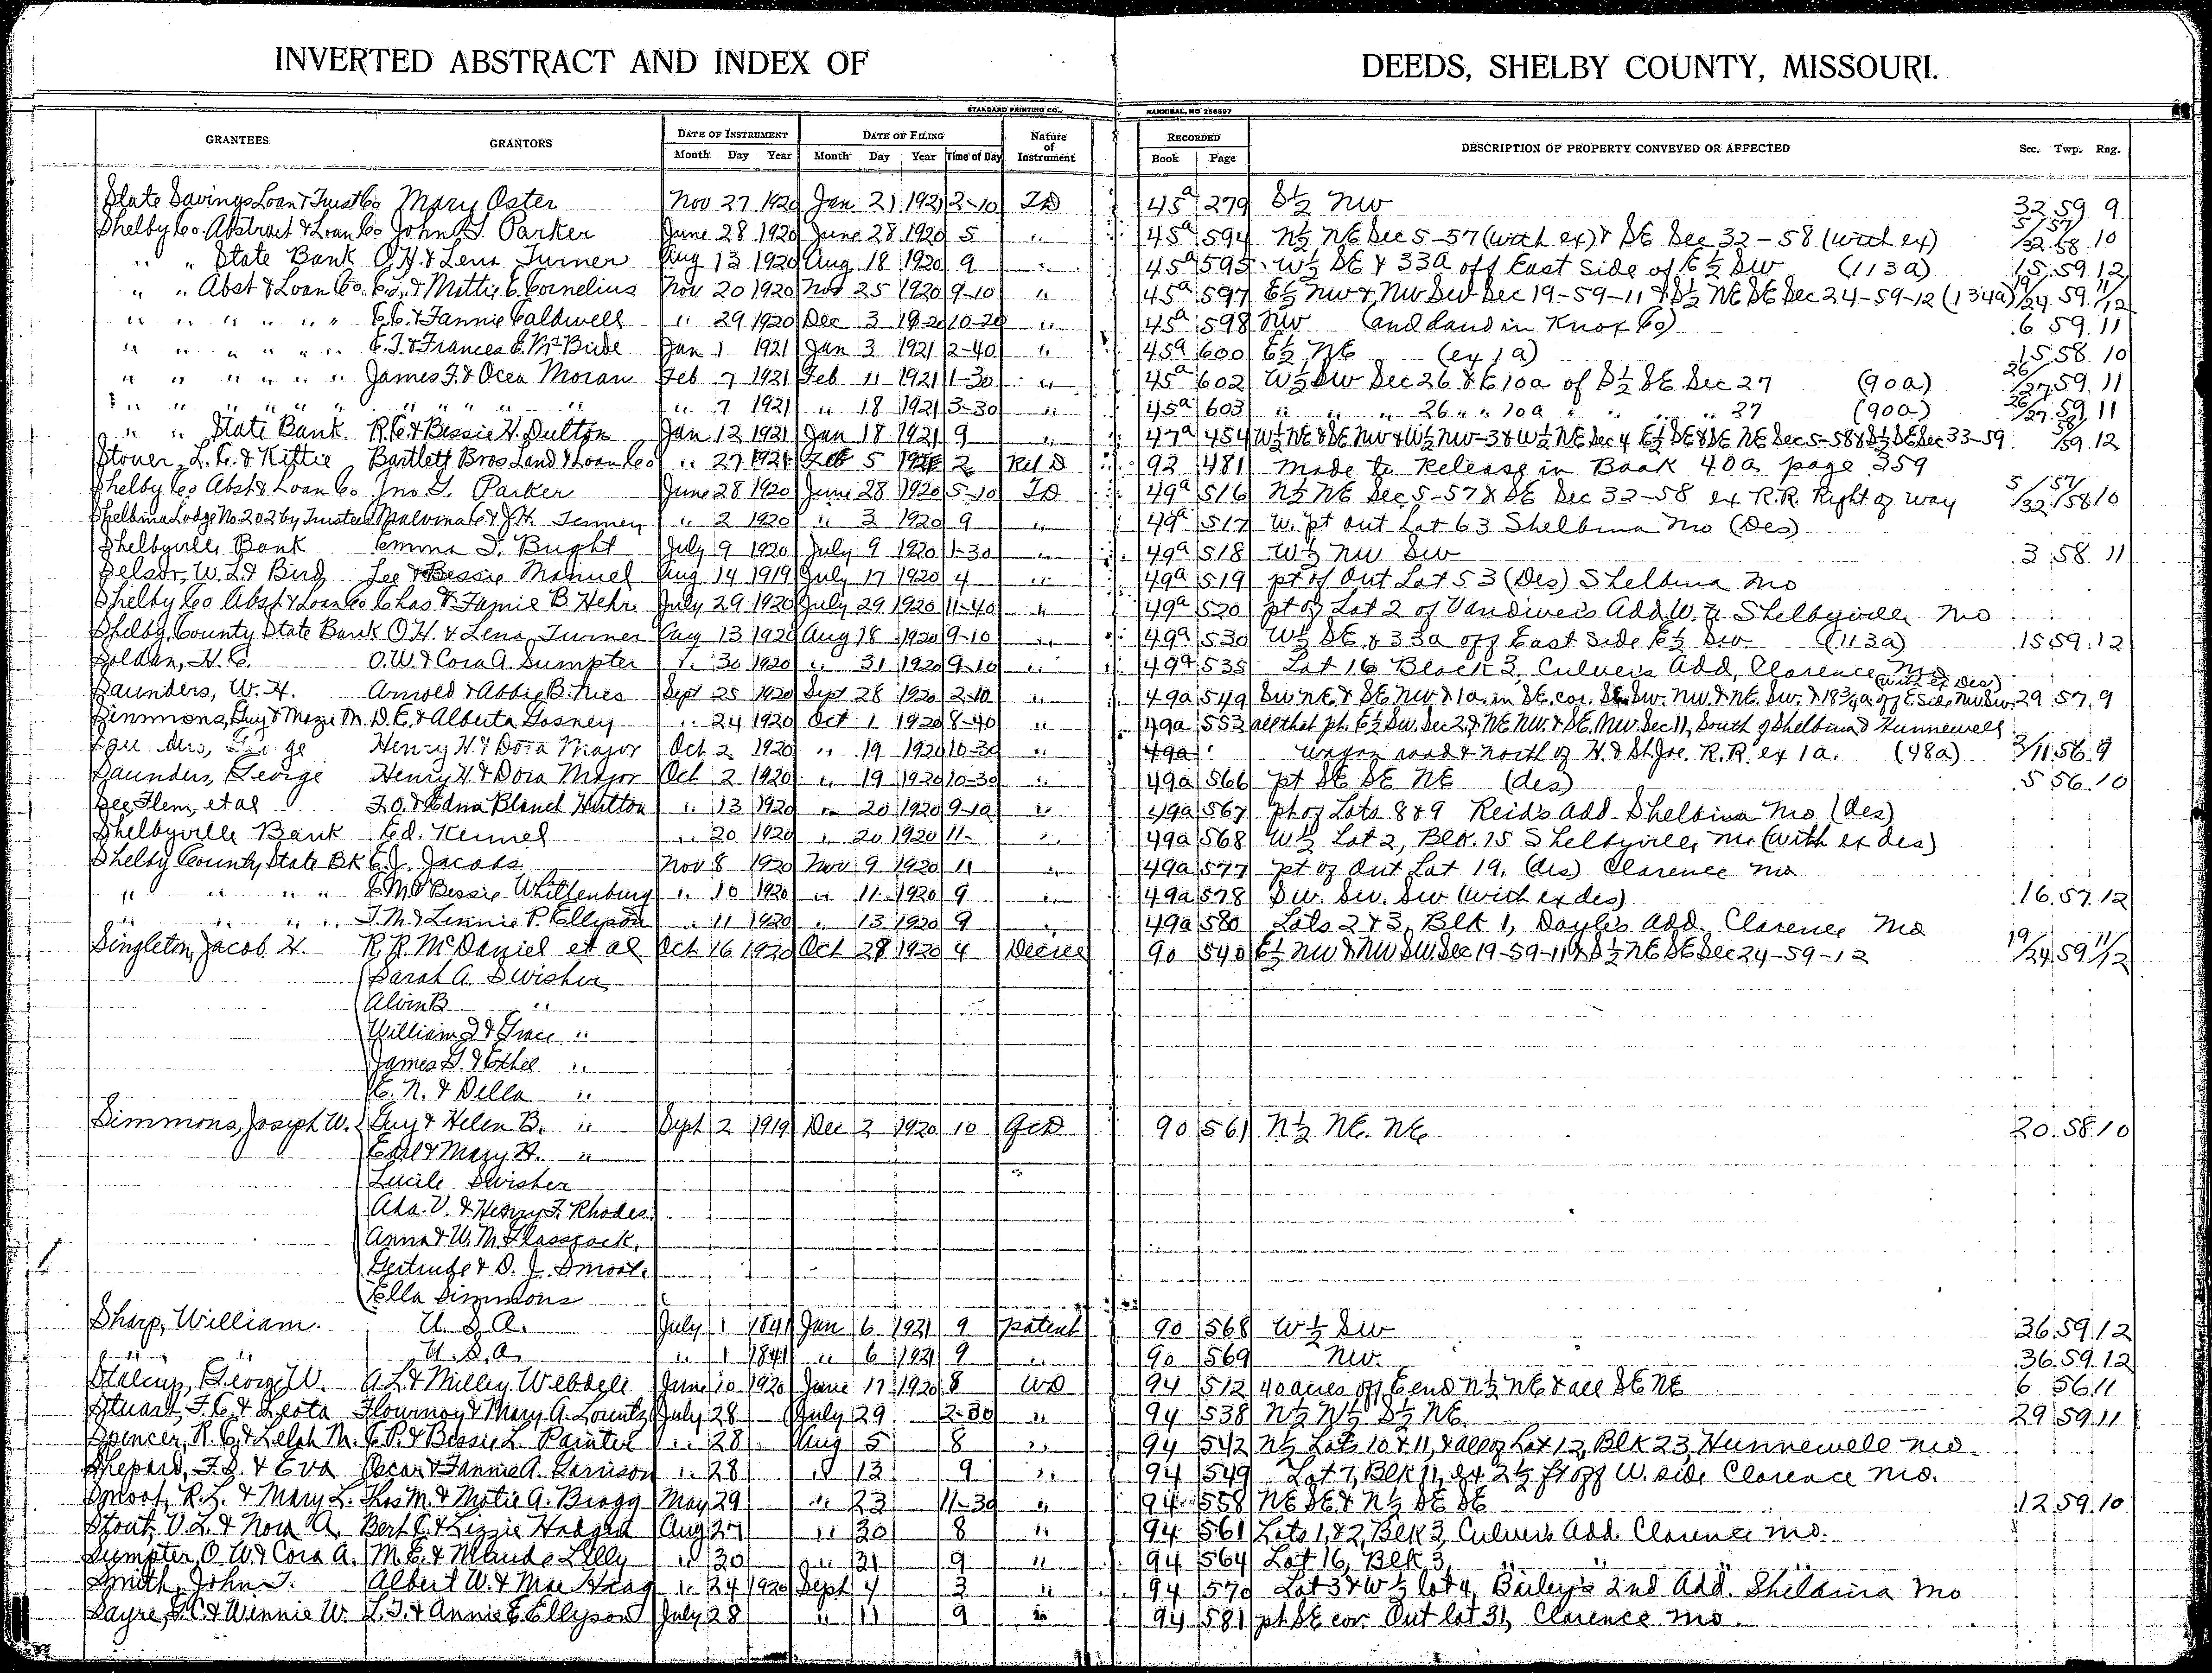 INVERTED ABSTRACT AND INDEX OF DEEDS, SHELBY COUNTY, MISSOURI.
STANDARD PRINTING CO., HANNIBAL, MO. 256897
GRANTEES GRANTORS DATE OF INSTRUMENT DATE OF FILING Nature of Instrument RECORDED DESCRIPTION OF PROPERTY CONVEYED OR AFFECTED Sec. Twp. Rng.
Month Day Year Month Day Year Time of Day Book Page
State Savings Loan & Trust Co Mary Oster Nov 27 1920 Jan 21 1921 2-10 TD 45a 279 S½ NW 32 59 9
Shelby Co Abstract & Loan Co John T. Parker June 28 1920 June 28 1920 5 " 45a 594 N½ NE Sec 5-57 (with ex) & SE Sec 32-58 (with ex) 5/32 57/58 10
" " State Bank O.H. & Lena Turner Aug 13 1920 Aug 18 1920 9 " 45a 595 W½ SE & 33a off East Side of E½ SW (113a) 15 59 12
" " Abst & Loan Co. & Mattie E. Cornelius Nov 20 1920 Nov 25 1920 9-10 " 45a 597 E½ NW & NW SW Sec 19-59-11 & S½ NE SE Sec 24-59-12 (134a) 19/24 59 11/12
" " " " " " E.E. & Fannie Caldwell " 29 1920 Dec 3 1920 10-20 " 45a 598 NW (and land in Knox Co) 6 59 11
" " " " " " E.T. & Frances E. McBride Jan 1 1921 Jan 3 1921 2-40 " 45a 600 E½ NE (ex 1a) 15 58 10
" " " " " " James F. & Ocea Moran Feb 7 1921 Feb 11 1921 1-30 " 45a 602 W½ SW Sec 26 & E 10a of S½ SE Sec 27 (90a) 26/27 59 11
" " " " " " " " " " " 7 1921 " 18 1921 3-30 " 45a 603 " " " 26 " " 10a " " " " 27 (90a) 26/27 59 11
" " State Bank R.E. & Bessie H. Dutton Jan 12 1921 Jan 18 1921 9 " 47a 454 W½ NE & SE NW & W½ NW-3 & W½ NE Sec 4 E½ SE & SE NE Sec 5-58 & S½ SE Sec 33-59 58/59 12
Stover, L.C. & Kittie Bartlett Bros Land & Loan Co " 27 1921 Feb 5 1921 2 Rel D 92 481 Made to Release in Book 40a page 359
Shelby Co Abst & Loan Co. Jno T. Parker June 28 1920 June 28 1920 5-10 TD 49a 516 N½ NE Sec 5-57 & SE Sec 32-58 ex R.R. Right of way 5/32 57/58 10
Shelbina Lodge No. 202 by Trustees Malvina C & J.H. Tenney " 2 1920 " 3 1920 9 " 49a 517 W. pt Out Lot 63 Shelbina Mo (Des)
Shelbyville Bank Emma S. Bught July 9 1920 July 9 1920 1-30 " 49a 518 W½ NW SW 3 58 11
Selsor, W.L. & Bird Lee & Bessie Manuel Aug 14 1919 July 17 1920 4 " 49a 519 pt of Out Lot 53 (Des) Shelbina Mo
Shelby Co Abst & Loan Co Chas F. & Jamie B Hehr July 29 1920 July 29 1920 11-40 " 49a 520 pt of Lot 2 of Vandiver's Add W. of Shelbyville Mo
Shelby County State Bank O.H. & Lena Turner Aug 13 1920 Aug 18 1920 9-10 " 49a 530 W½ SE & 33a off East Side E½ SW (113a) 15 59 12
Soldan, H.C. O.W. & Cora A. Sumpter " 30 1920 " 31 1920 9-10 " 49a 535 Lot 16 Block 3, Culver's Add, Clarence Mo
Saunders, W.H. Arnold & Abbie B. Nies Sept 25 1920 Sept 28 1920 2-10 " 49a 549 SW NE & SE NW & 1a in SE cor. SE SW NW & NE SW & 18¾a off E side NW SW (with ex des) 29 57 9
Simmons, Guy & Mazie M. D.E. & Alberta Gosney " 24 1920 Oct 1 1920 8-40 " 49a 553 all that pt. E½ SW Sec 2 & NE NW & SE NW Sec 11, South of Shelbina & Hunnewell
Henry H. & Dora Major Oct 2 1920 " 19 1920 10-30 " 49a wagon road & north of H. & St. Joe. R.R. ex 1a. (48a) 2/11 56 9
Saunders, George Henry H. & Dora Major Oct 2 1920 " 19 1920 10-30 " 49a 566 pt SE SE NE (des) 5 56 10
See, Flem, et al F.O. & Edna Blanch Hutton " 13 1920 " 20 1920 9-10 " 49a 567 pt of Lots 8 & 9 Reid's Add. Shelbina Mo (des)
Shelbyville Bank Ed. Kennel " 20 1920 " 20 1920 11- " 49a 568 W½ Lot 2, Blk. 15 Shelbyville, Mo. (with ex des)
Shelby County State Bk E.J. Jacobs Nov 8 1920 Nov 9 1920 11 " 49a 577 pt of Out Lot 19, (des) Clarence Mo
" " " " E.M. & Bessie Whittenburg " 10 1920 " 11 1920 9 " 49a 578 SW. SW. SW (with ex des) 16 57 12
" " " " J.M. & Linnie P. Ellyson " 11 1920 " 13 1920 9 " 49a 580 Lots 2 & 3, Blk 1, Doyle's Add. Clarence Mo
Singleton, Jacob H. R.R. McDaniel et al Oct 16 1920 Oct 28 1920 4 Decree 90 540 E½ NW & NW SW Sec 19-59-11 & S½ NE SE Sec 24-59-12 19/24 59 11/12
Sarah A. Swisher
Alvin B. "
William J. & Grace "
James G. & Ethel "
E. N. & Della "
Simmons, Joseph W. Guy & Helen B. " Sept 2 1919 Dec 2 1920 10 QCD 90 561 N½ NE NE 20 58 10
Earl & Mary H. "
Lucile Swisher
Ada V. & Henry F. Rhodes
Anna & W.M. Glasscock
Gertrude & O. J. Smoot
Ella Simmons
Sharp, William. U. S. A. July 1 1841 Jan 6 1921 9 patent 90 568 W½ SW 36 59 12
" " U. S. A. " 1 1841 " 6 1921 9 " 90 569 NW 36 59 12
Stalcup, George W. A.L. & Milley Webdell June 10 1920 June 17 1920 8 WD 94 512 40 acres off E end N½ NE & all SE NE 6 56 11
Stuart, F.C. & Leota Flournoy & Mary A. Lountz July 28 July 29 2-30 " 94 538 N½ N½ S½ NE 29 59 11
Spencer, R.C. & Lelah M. E.P. & Bessie L. Painter " 28 Aug 5 8 " 94 542 N½ Lots 10 & 11, & all of Lot 12, Blk 23, Hunnewell Mo.
Shepard, F.D. & Eva Oscar & Fannie A. Garrison " 28 " 13 9 " 94 549 Lot 7, Blk 11, ex 2½ ft off W. side Clarence Mo.
Smoot, R.L. & Mary L. Thos M. & Motie A. Bragg May 29 " 23 11-30 " 94 558 NE SE & N½ SE SE 12 59 10
Stout, V.L. & Nora A. Bert C. & Lizzie Hodges Aug 27 " 30 8 " 94 561 Lots 1, & 2, Blk 3, Culver's Add. Clarence Mo.
Sumpter, O.W. & Cora A. M.E. & Maude Lilly " 30 " 31 9 " 94 564 Lot 16, Blk 3, " " " "
Smith, John T. Albert W. & Mae Haag " 24 1920 Sept 4 3 " 94 570 Lot 3 & W½ lot 4, Bailey's 2nd Add. Shelbina Mo
Sayre, S.C. & Winnie W. L.T. & Annie E. Ellyson July 28 " 11 9 " 94 581 pt SE cor. Out lot 31, Clarence Mo.